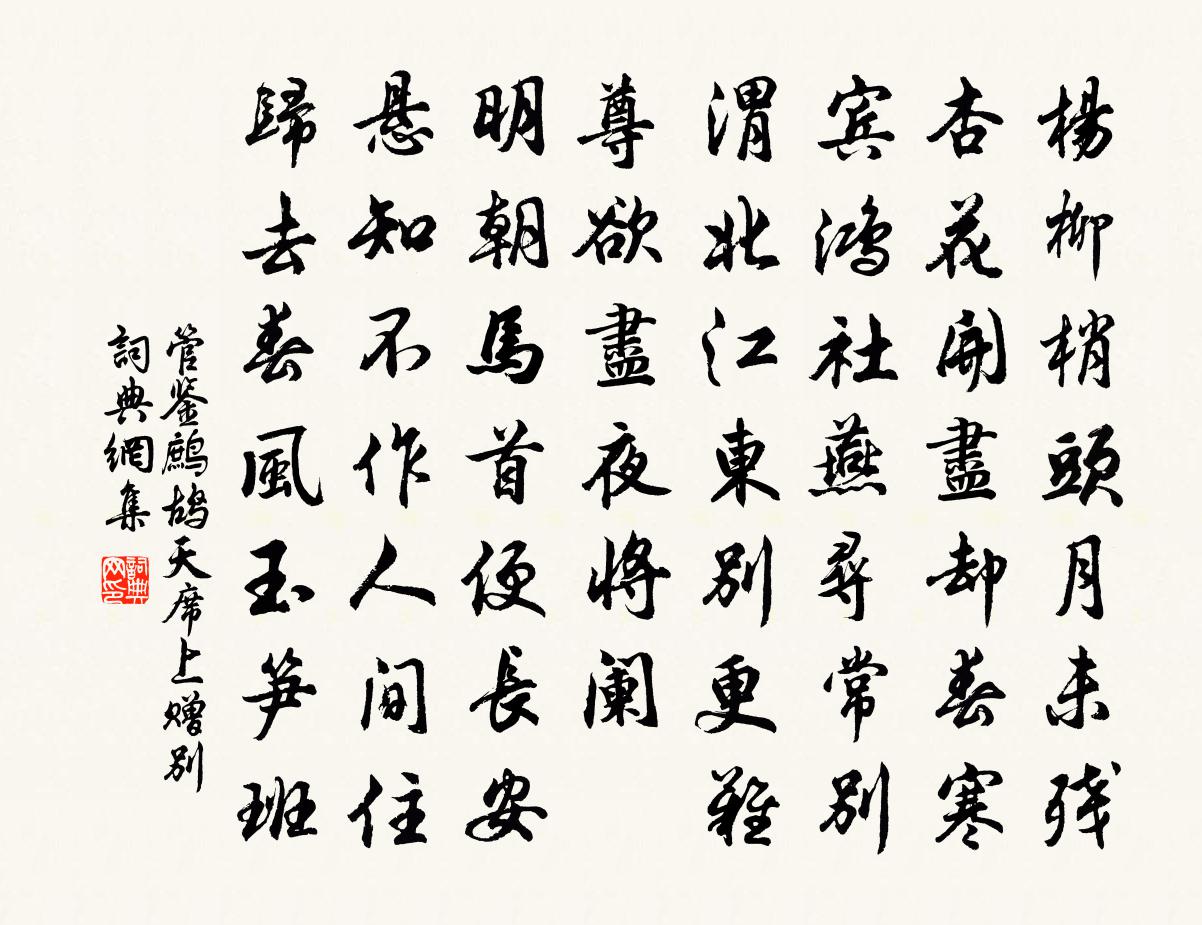 楊柳梢頭月未殘
杏花開盡却春寒
宾鴻社燕尋常別
渭北江東別更難
尊欲盡夜将阑
明朝馬首便長安
悬知不作人間住
歸去春風玉笋班
管鉴鷓鴣天席上赠别
詞典網集
詞典网印